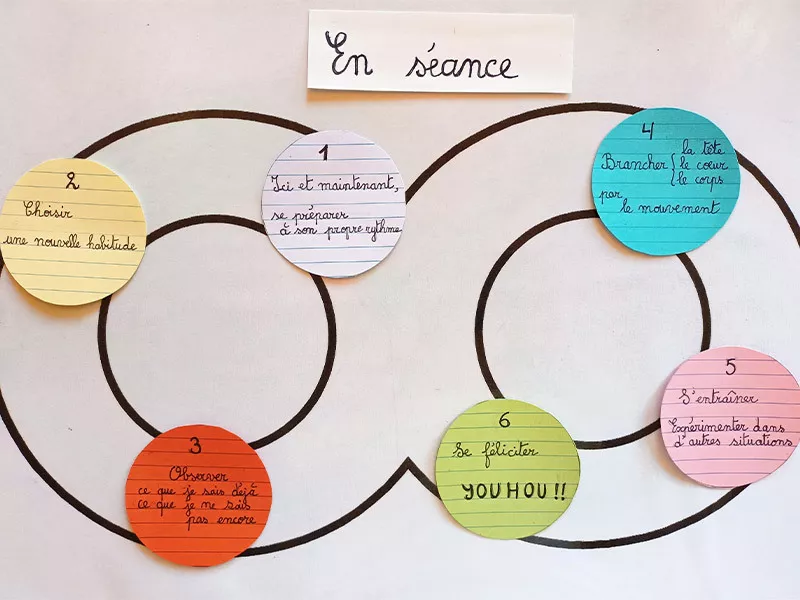 En séance
1
Ici et maintenant,
se préparer
à son propre rythme
2
Choisir
une nouvelle habitude
3
Observer
ce que je sais déjà
ce que je ne sais
pas encore
4
la tête
Brancher { le cœur
le corps
par
le mouvement
5
S'entraîner
Expérimenter dans
d'autres situations
6
Se féliciter
YOUHOU !!